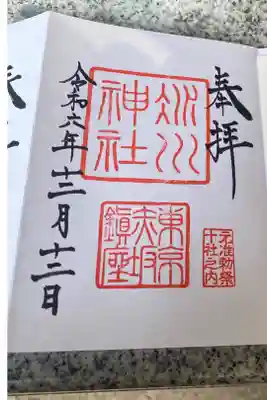 奉拝
氷川
神社
東京
赤坂
鎮座
元准勅祭
十社之内
令和六年十二月十二日